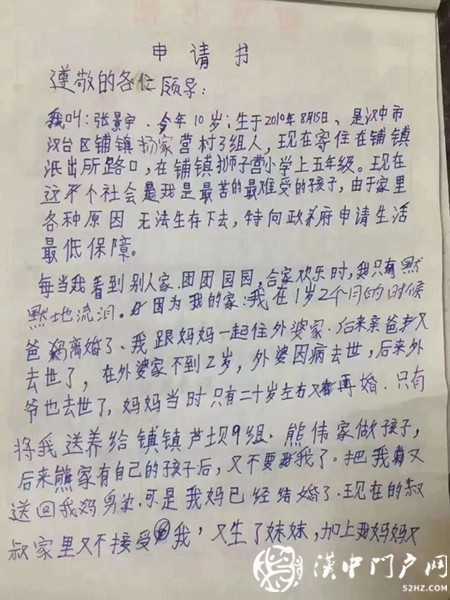 申请书
尊敬的各位领导:
我叫:张景宇.今年10岁;生于2010年8月15日、是汉中市
汉台区铺镇杨家营村3组人,现在寄住在铺镇
派出所路口,在铺镇狮子营小学上五年级。现在
这个社会是我是最苦的最难受的孩子,由于家里
各种原因无法生存下去,特向政府申请生活
最低保障。
每当我看到别人家.团团园园,合家欢乐时,我只有默
默地流泪。因为我的家:我在1岁2个月的时候
爸妈离婚了、我跟妈妈一起住外婆家.后来亲爸爸又
去世了,在外婆家不到2岁,外婆因病去世,后来外
爷也去世了,妈妈当时只有二十岁左右又再婚.只有
将我送养给铺镇芦坝9组.熊伟家做孩子,
后来熊家有自己的孩子后,又不要我了。把我又
送回我妈身边.可是我妈已经结婚了.现在的叔
叔家里又不接受我,又生了妹妹,加上我妈妈又
汉中门户网
52HZ.COM